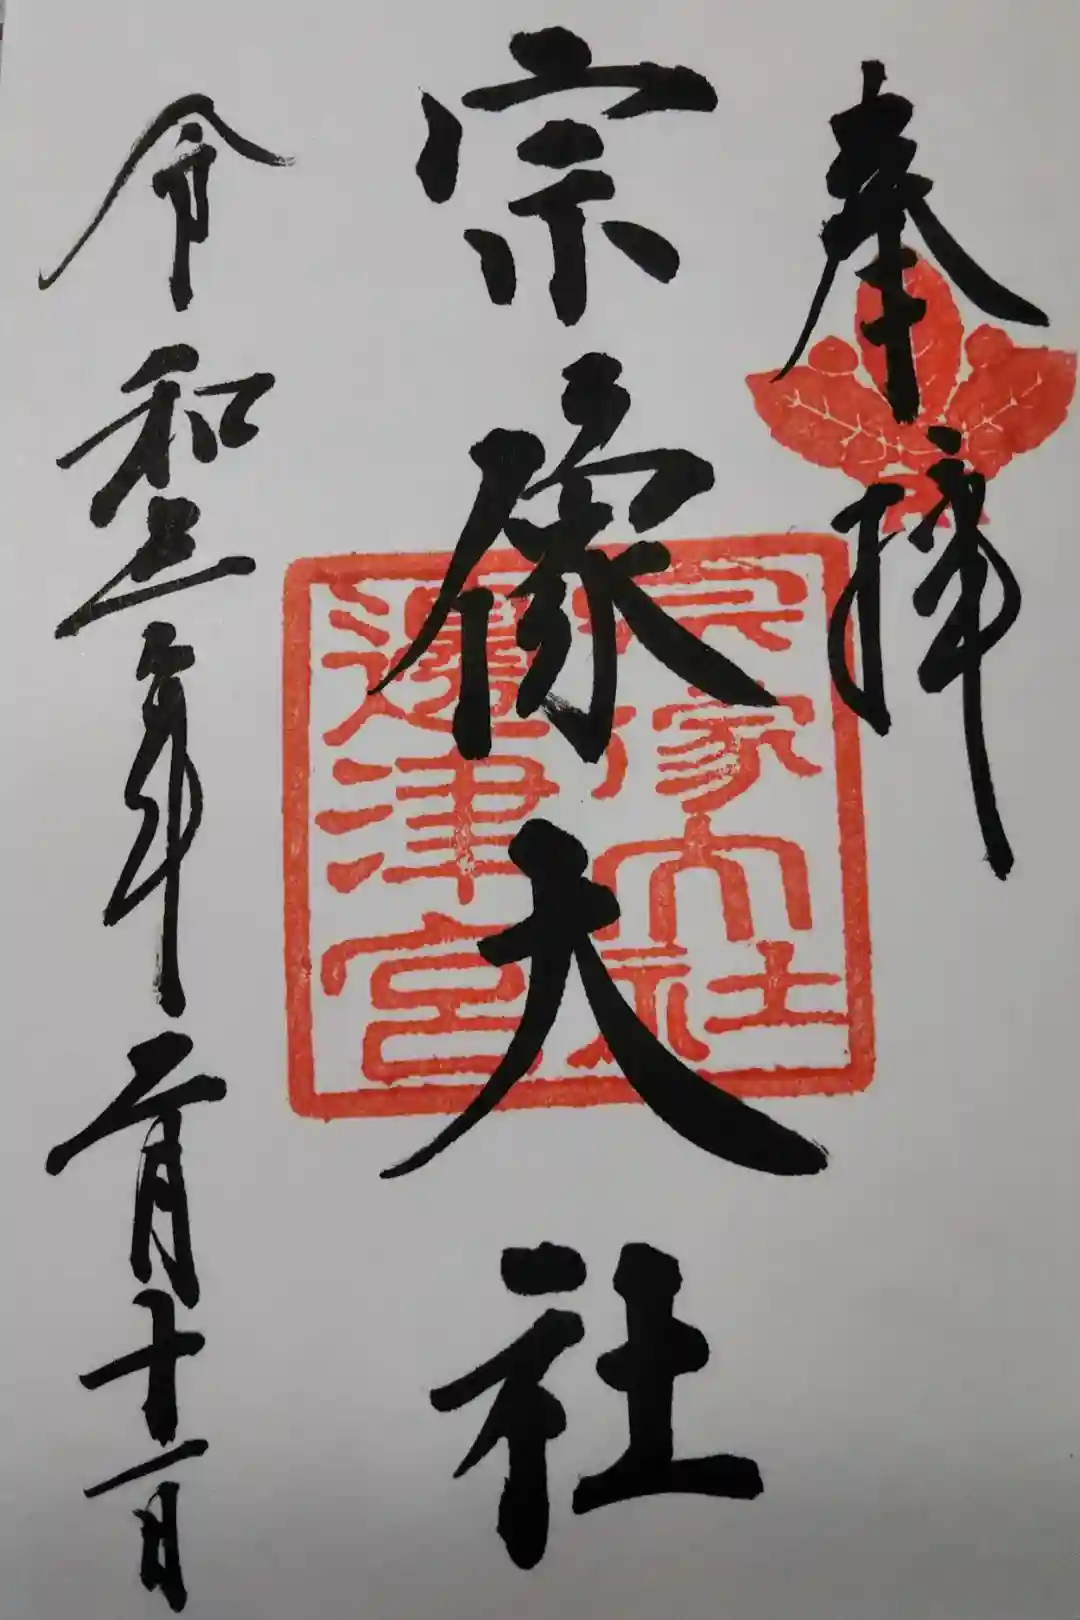 奉拝
宗像大社
令和三年二月十一日
宗像大社
邊津宮